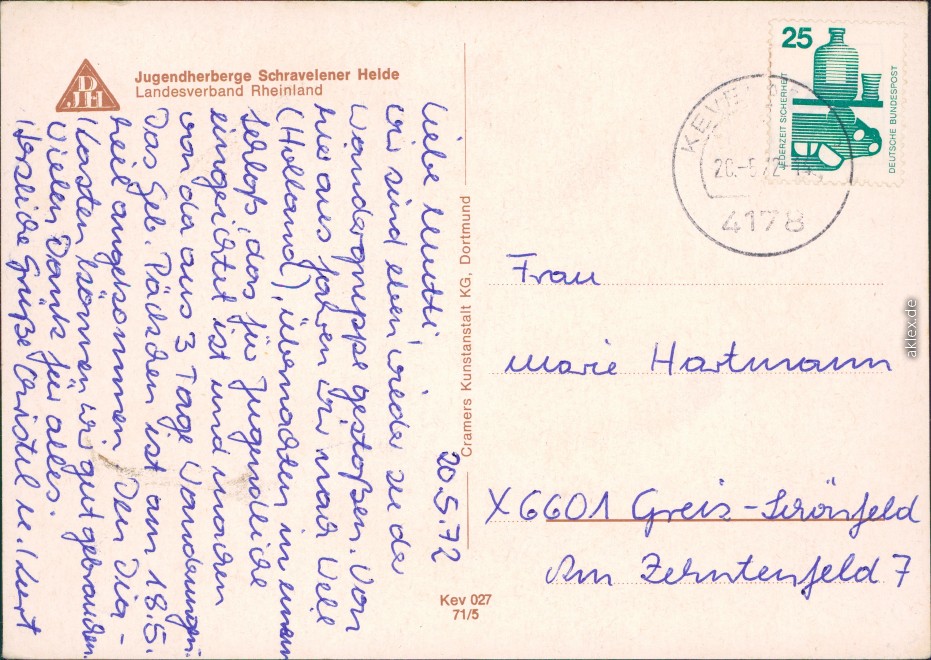 Jugendherberge Schravelener Heide
Landesverband Rheinland
DJH
20.5.72
Liebe Mutti!
Wir sind eben wieder zu der
Wandergruppe gestoßen. Von
hie aus fahren wir nach Well
(Holland), übernachten in einem
Schloß, das für Jugendliche
eingerichtet ist und machen
von da aus 3 Tage Wanderungen.
Das Geb. Päckchen ist am 18.5.
heil angekommen. Den Dia-
Kasten können wir gut gebrauchen.
Vielen Dank für alles.
Herzliche Grüße Christel u. Kurt
Cramers Kunstanstalt KG, Dortmund
Kev 027
71/5
25
JEDERZEIT SICHERHEIT
DEUTSCHE BUNDESPOST
4178
Frau
Marie Hartmann
X 6601 Greiz-Schönfeld
Am Zehntenfeld 7
aklex.de